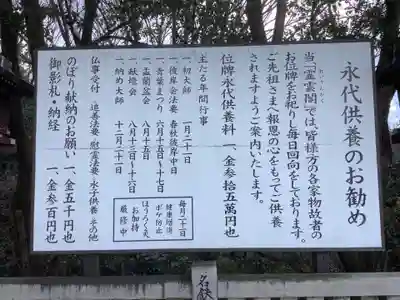 永代供養のお勧め
当「霊霊閣」では皆様方の各家物故者の
お位牌をお祀りし毎日回向をしております。
ご先祖さまへ報恩の心をもってご供養
されますようご案内いたします。
位牌永代供養料 一、金参拾五萬円也
主たる年間行事
一、初大師 一月二十一日
一、彼岸会法要 春秋彼岸中日
一、青葉まつり 六月十五日〜十七日
一、盂蘭盆会 八月十五日
一、献燈会 八月十三日〜十六日
一、納め大師 十二月二十一日
毎月二十一日
健康増進
ボケ防止
ほうろく灸
お加持
厳修中
仏事受付 追善法要・慰霊法要・水子供養・その他
のぼり献納のお願い 一、金五千円也
御影札・納経 一、金参百円也
名鉄